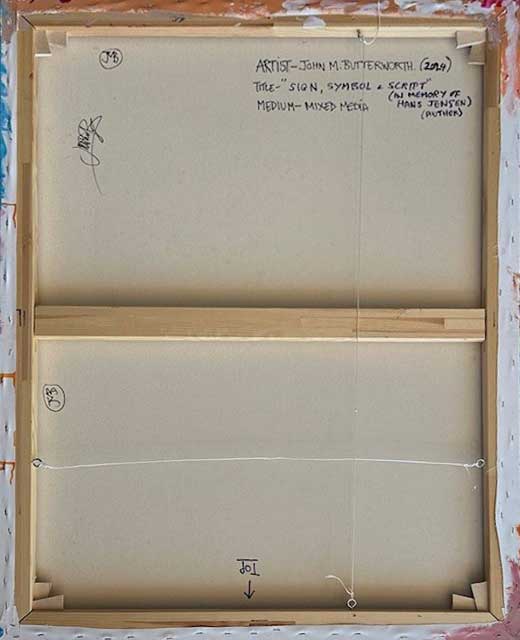 JMB
ARTIST-JOHN M. BUTTERWORTH. (2024)
TITLE-"SIGN, SYMBOL & SCRIPT"
(IN MEMORY OF
MEDIUM-MIXED MEDIA HANS JENSEN)
(AUTHER)
JMB
TOP